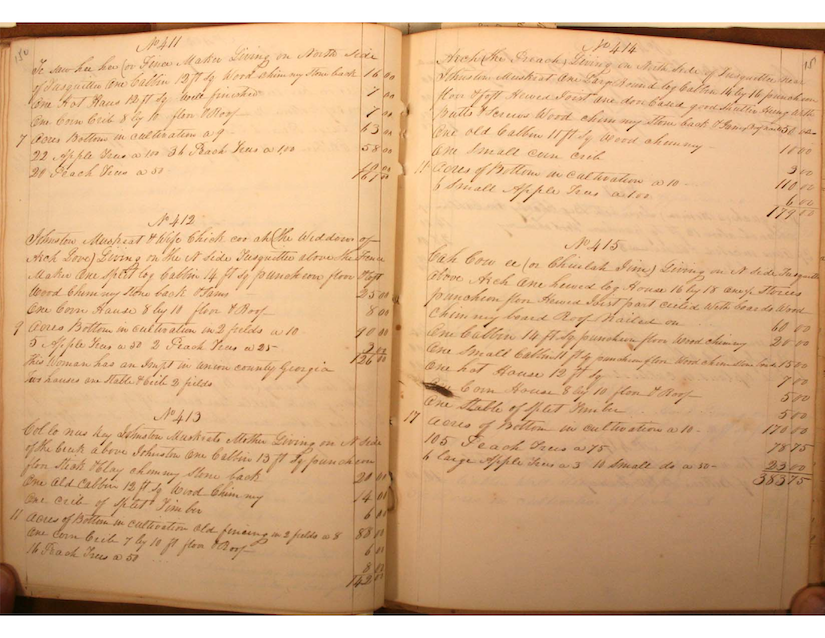 150
No 411
(or Fence Maker Living on North Side
of Tusquittee One Cabbin 12 ft Sq Wood chimny Stone back 16 00
One Hot Haus 12 ft Sq 7 00
One Corn Crib 8 by 10 flor & Roof 7 00
7 Acres Bottom in cultivation a 9 63 00
22 Apple Trees a 100 36 Peach Trees a 1,00 58 00
20 Peach Trees a 50
161 00
No 412
Johnston Muskrat & Wife Chick coo ah (the Weddow of
Arch Dove) Living on the N Side Tusquittee above the Fence
Maker One Split log Cabbin 14 ft Sq puncheon flor & loft
Wood Chimny Stone back & Jams 25 00
One Corn House 8 by 10 flor & Roof 8 00
9 Acres Bottom in cultivation in 2 fields a 10 90 00
5 Apple Trees a 50 2 Peach Trees a 25
126 00
This Woman has an Impt in Union County Georgia
two houses one Stable & Crib 2 fields
No 413
Col lo nus key Johnston Muskrats Mother Living on N Side
of the Creek above Johnston One Cabbin 13 ft Sq puncheon
flor Stick & Clay chimny Stone back 20 00
One Old Cabbin 12 ft Sq Wood Chimny 14 00
One crib of Split Timber 6 00
11 Acres of Bottom in cultivation old fencing in 2 fields a 8 88 00
One corn Crib 7 by 10 ft flor & Roof 6 00
16 Peach Trees a 50 8 00
142 00
No 414
Arch (the Preach) Living on North Side of Tusquittee near
Johnston Muskrat One Large Round log Cabbin 16 by 16 puncheon
flor & loft Hewed Joist One dor Cased good Shutter Hung with
butts & Screws Wood chimny Stone back 50 00
One old Cabbin 11 ft Sq Wood chimny 10 00
One Small corn crib 3 00
11 Acres of Bottom in cultivation a 10 110 00
6 Small Apple Trees a 100 6 00
179 00
No 415
Cah Cow ee (or Cheulah Jim) Living on N Side Tusquittee
above Arch One hewed log House 16 by 18 Stories
puncheon flor Hewed Joist part ceiled with boards Wood
chimny board Roof Nailed on 60 00
One Cabbin 14 ft Sq puncheon flor Wood chimny 20 00
One Small Cabbin 11 ft Sq puncheon flor Wood chim Stone back 15 00
One Hot House 12 ft Sq 7 00
One Corn House 8 by 10 flor & Roof 5 00
One Stable of Split Timber 5 00
17 Acres of Bottom in cultivation a 10 170 00
105 Peach Trees a 75 78 75
6 large Apple Trees a 3 10 Small do a 50 23 00
383 75